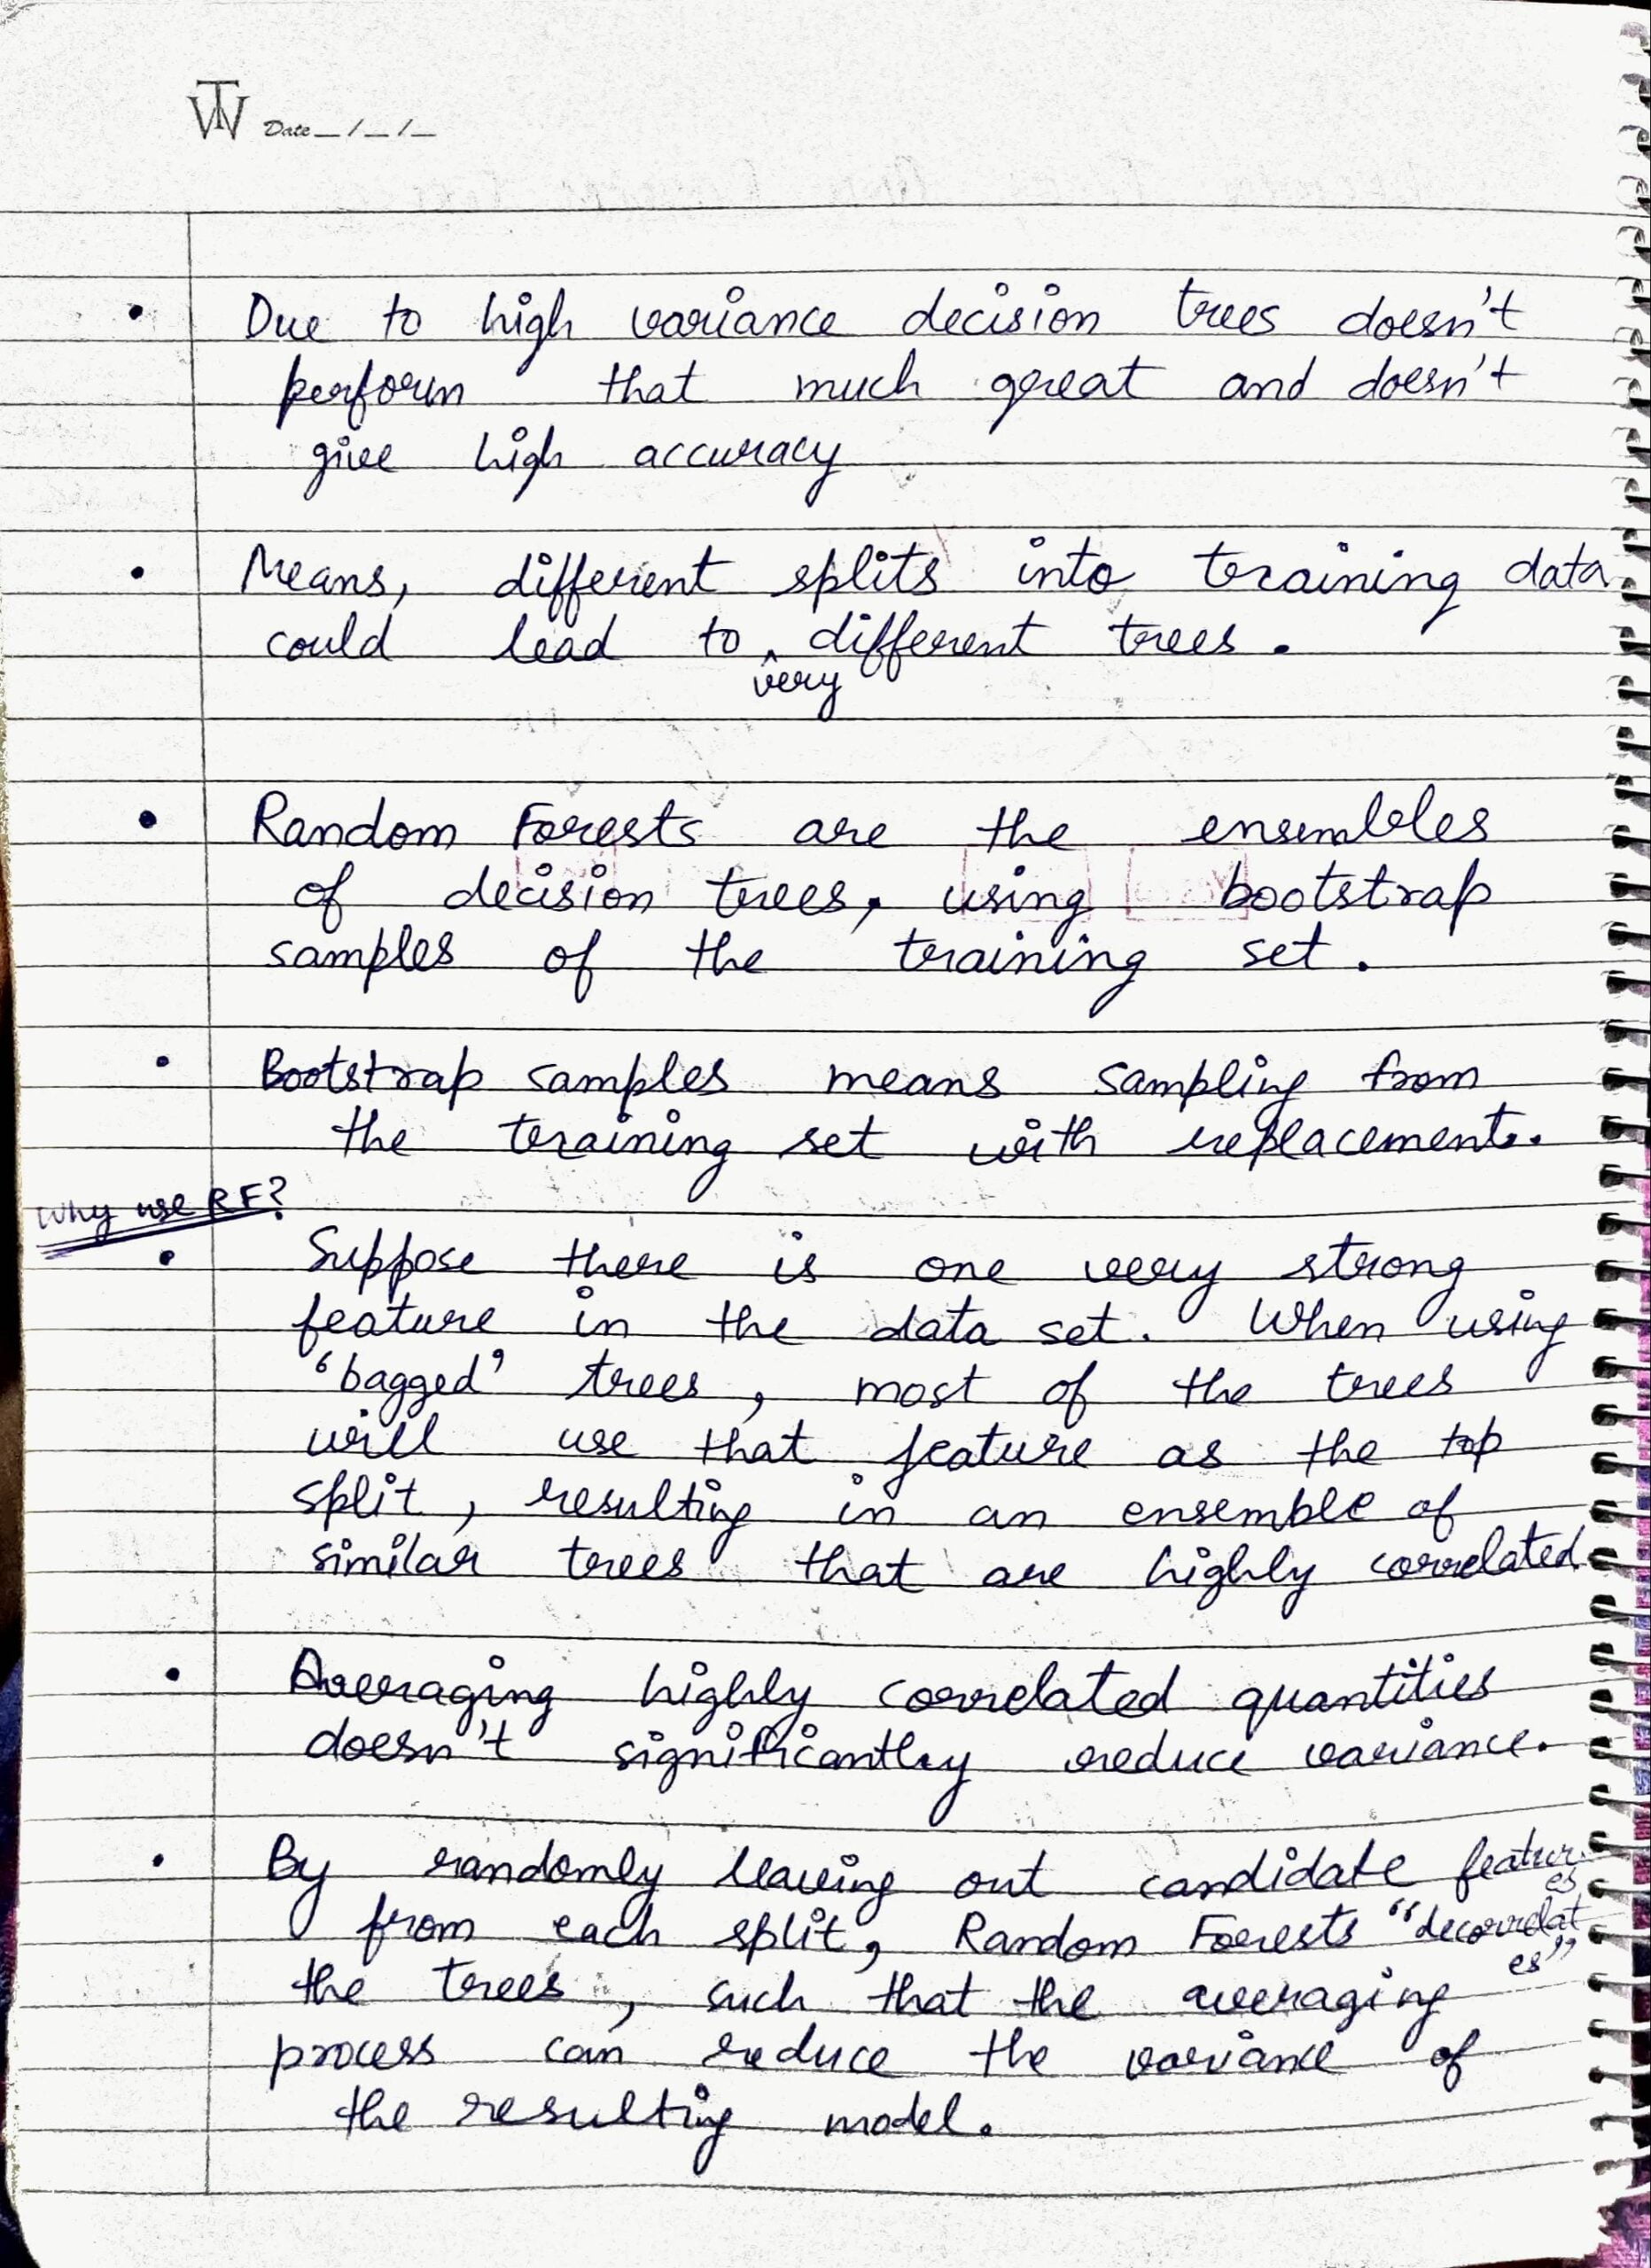 TWN Date _ / _ / _
• Due to high variance decision trees doesn't
perform that much great and doesn't
give high accuracy
• Means, different splits into training data
could lead to ^ different trees.
very
• Random Forests are the ensembles
of decision trees, using bootstrap
samples of the training set.
• Bootstrap samples means sampling from
the training set with replacement.
Why use RF?
• Suppose there is one very strong
feature in the data set. When using
'bagged' trees, most of the trees
will use that feature as the top
split, resulting in an ensemble of
similar trees that are highly correlated
• Averaging highly correlated quantities
doesn't significantly reduce variance.
• By randomly leaving out candidate featur
es
from each split, Random Forests "decorrelat
es"
the trees, such that the averaging
process can reduce the variance of
the resulting model.